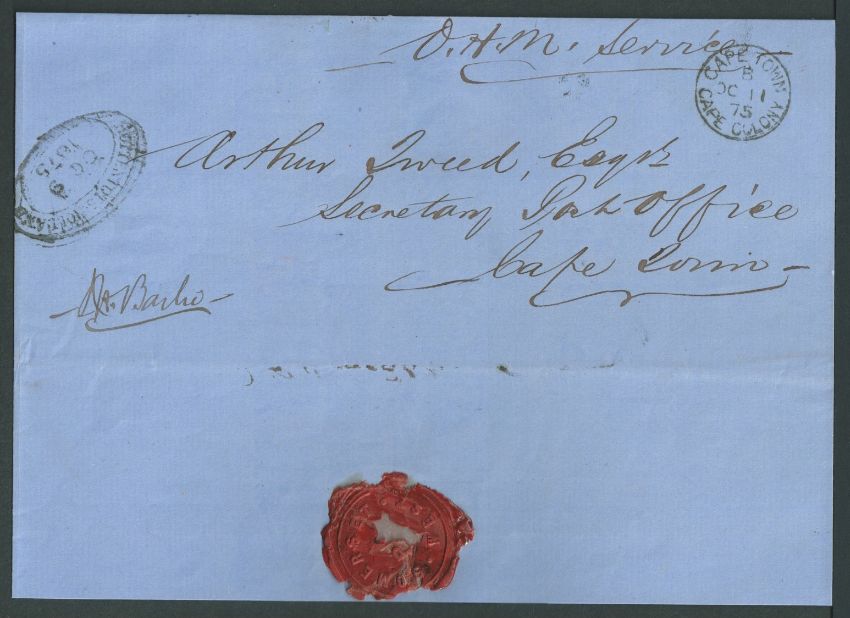 O.H.M. Service
CAPE TOWN
B
OC 11
75
CAPE COLONY
OC 9
1875
Arthur Tweed, Esqr
Secretary Post Office
Cape Town